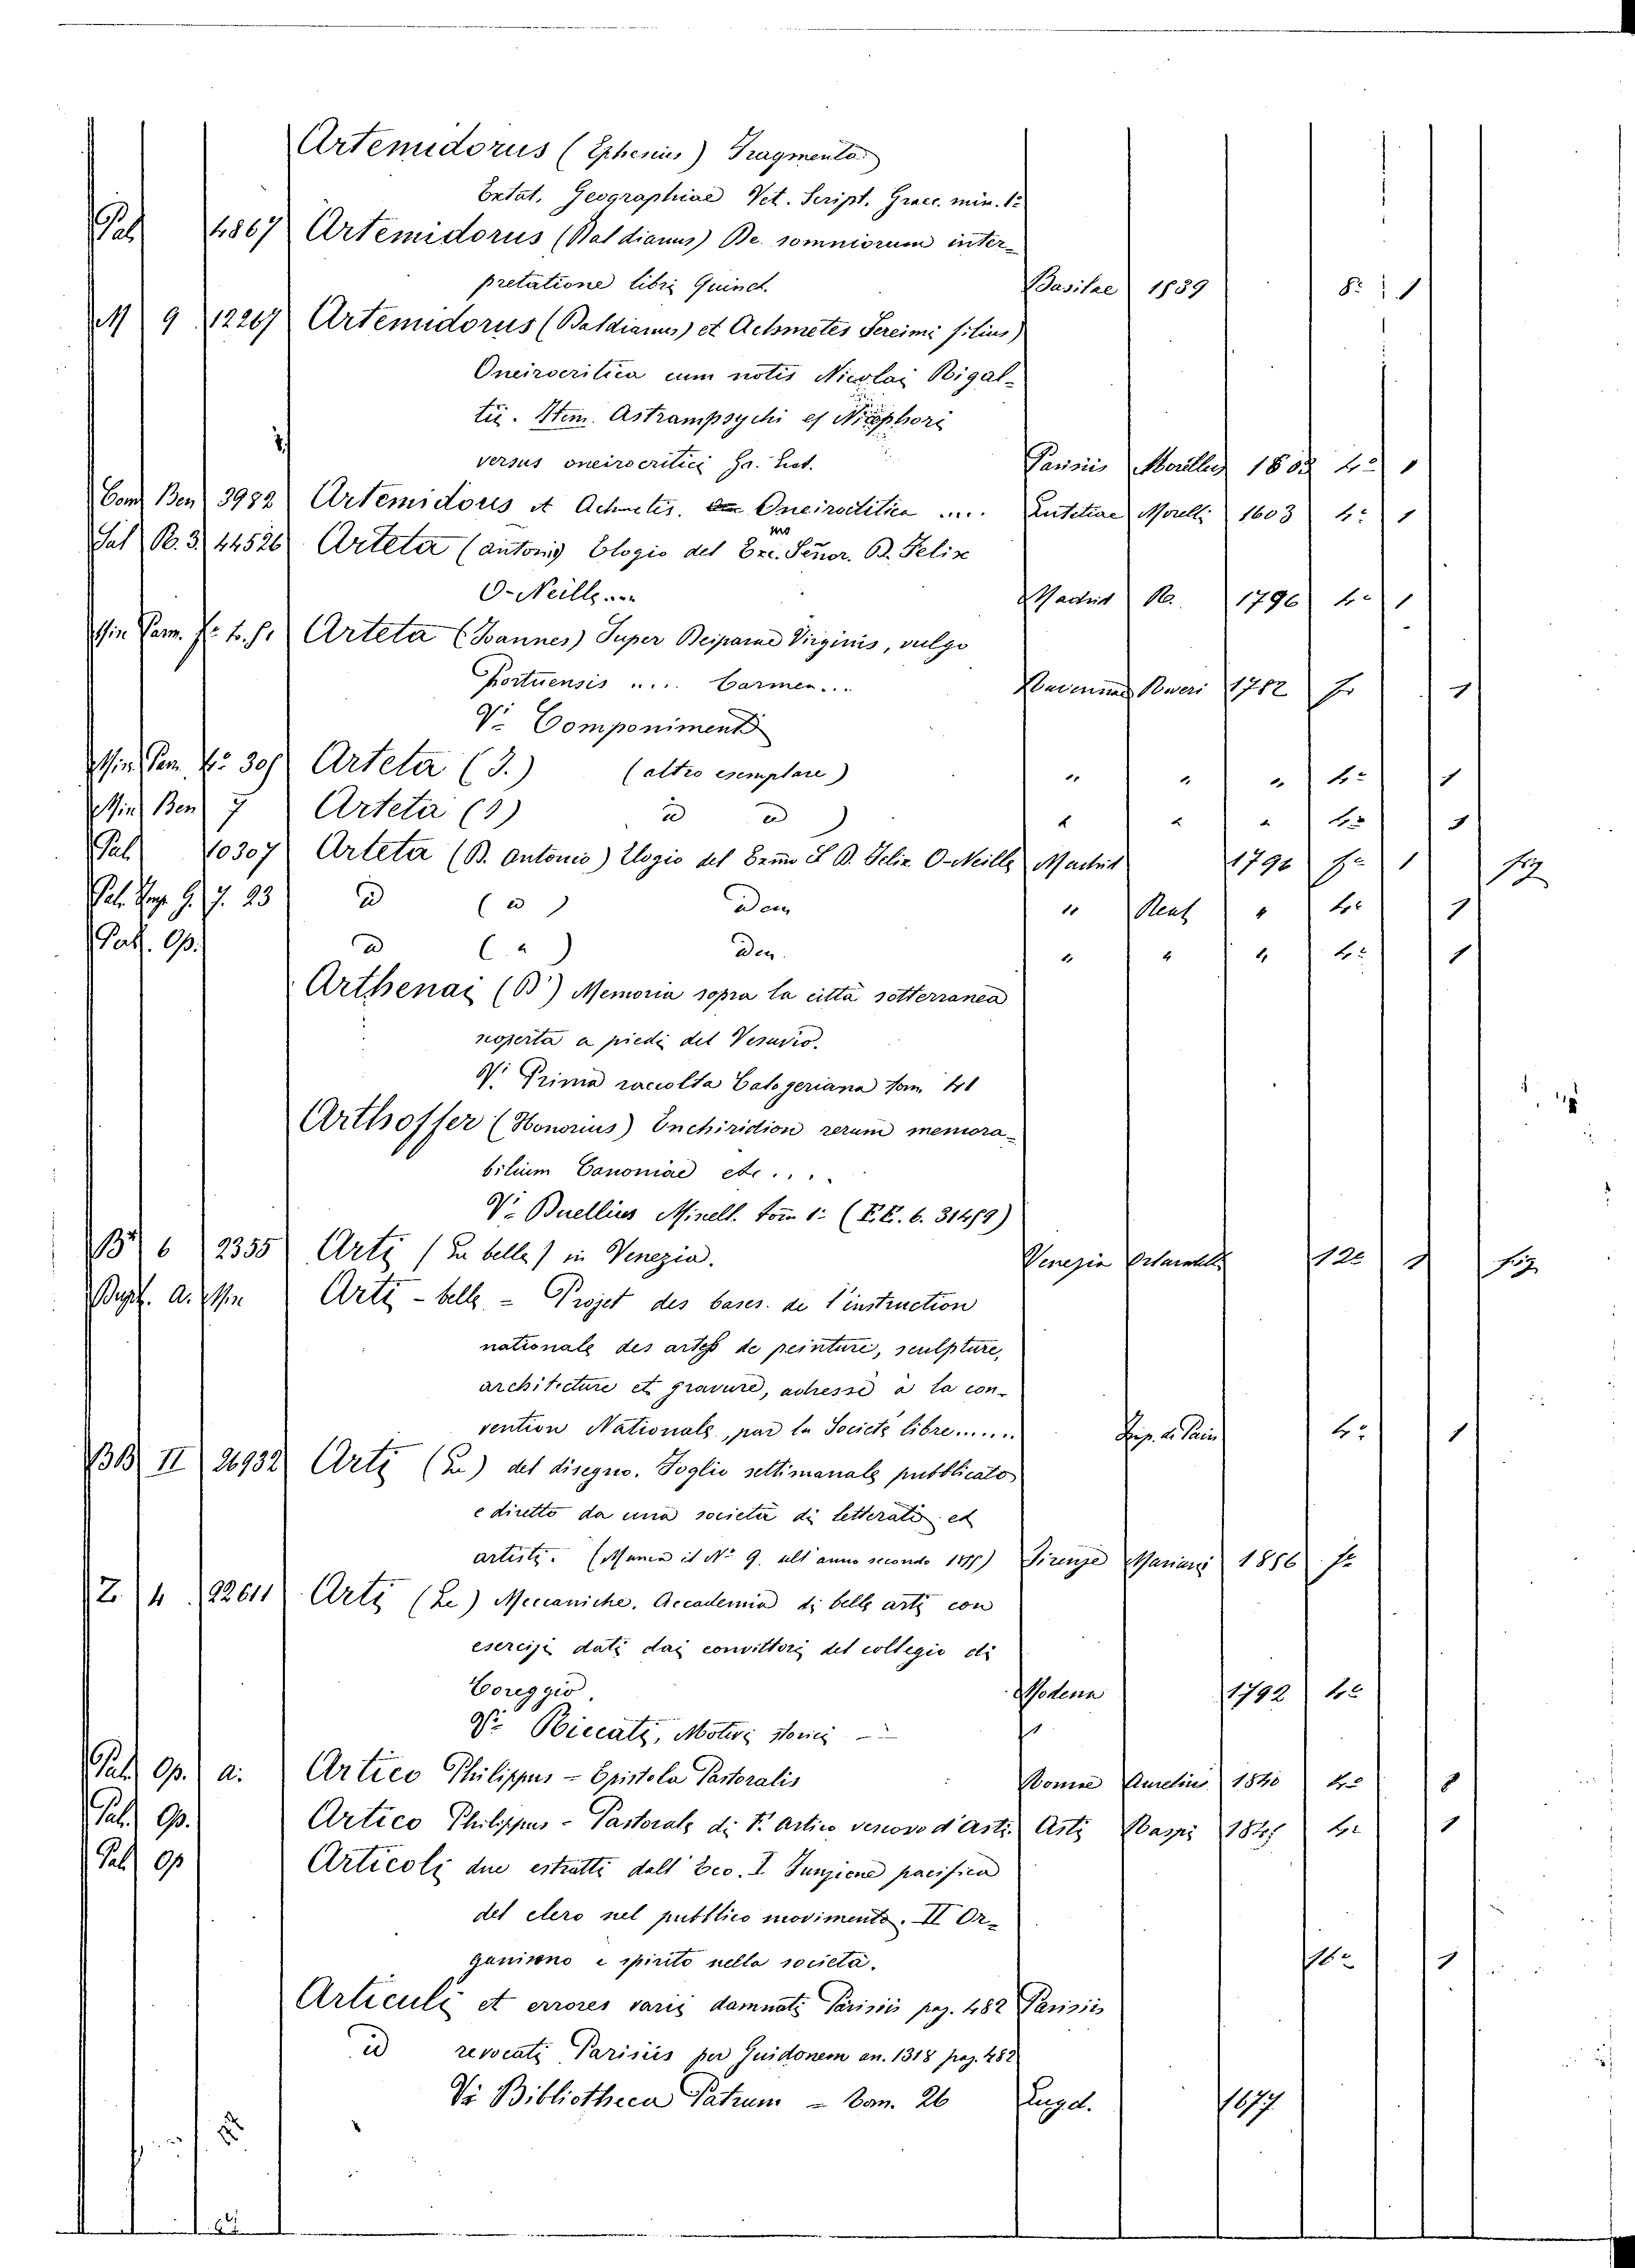 Artemidorus (Ephesius) Fragmenta
Extat. Geographiae Vet. Script. Graec. min. 1:
Pal 4867 Artemidorus (Daldianus) De somniorum inter-
pretatione libri Quinct. Basilae 1539 8: 1
M 9 12267 Artemidorus (Baldianus) et Achmetes Sereimi filius)
Oneirocritica cum notis Nicolai Rigal-
tii. Item. Astrampsychi et Nicephori
versus oneirocritici Gr. Lat. Parisiis Morelli 1603 4: 1
Com Ben 3982 Artemidoris et Achmetis. Oneirocritica .... Lutetiae Morelli 1603 4: 1
Sal R. 3. 44526 Arteta (Antonio) Elogio del Exc.mo Señor. D. Felix
O-Neille.... Madrid R. 1796 4: 1
Min Pam. Arteta (Joannes) Super Deiparae Virginis, vulgo
Portuensis .... Carmen... Ravennae Roveri 1782 1
V: Componimenti
Min Pam 4: 30 Arteta (J.) (altro esemplare) " " " 4: 1
Min Ben 7 Arteta (J) id id " " " 4: 1
Pal 10307 Arteta (D. Antonio) Elogio del D. Felix O-Neille Madrid 1796 1 fig
Pal. G. 7. 23 id (id) idem " Real " 4: 1
Pal. Op. id (") idem " " " 4: 1
Arthenai (D') Memoria sopra la città sotterranea
scoperta a piedi del Vesuvio.
V: Prima raccolta Calogeriana tom 41
Arthoffer (Honorius) Enchiridion rerum memora-
bilium Canoniae etc ....
V: Duellius Miscell. tom 1: (E.E. 6. 31459)
B 6 2355 Arti (Le belle) in Venezia. Venezia 12: 1 fig
A. Min Arti - belle = Projet des bases de l'instruction
nationale des artes de peinture, sculpture,
architecture et gravure, adressé a la con-
vention Nationale, par la Société libre...... Imp. de Pain 4: 1
BB II 26932 Arti (Le) del disegno. Foglio settimanale pubblicato
e diretto da una società di letterati et
artisti. (Manca il N: 9. all anno secondo 1855) Firenze Mariani 1856 f:
Z. 4 22611 Arti (Le) Meccaniche. Accademia di belle arti con
esercizi dati dai convittori del collegio di
Coreggio. Modena 1792 4:
V: Riccati, Motivi storici --
Pal Op. a. Artico Philippus = Epistola Pastoralis Romae Aurelii 1840 4: 1
Pal. Op. Artico Philippus - Pastorale di F. Artico vescovo d'Asti. Asti Raspi 184 4: 1
Pal Op Articoli due estratti dall Eco. I Funzione pacifica
del clero nel pubblico movimento. II Or-
ganismo e spirito nella società. 16: 1
Articuli et errores varii damnati Parisiis pag. 482 Parisiis
id revocati Parisiis per Guidonem an. 1318 pag. 482
V: Bibliotheca Patrum - tom. 26 Lugd. 1677